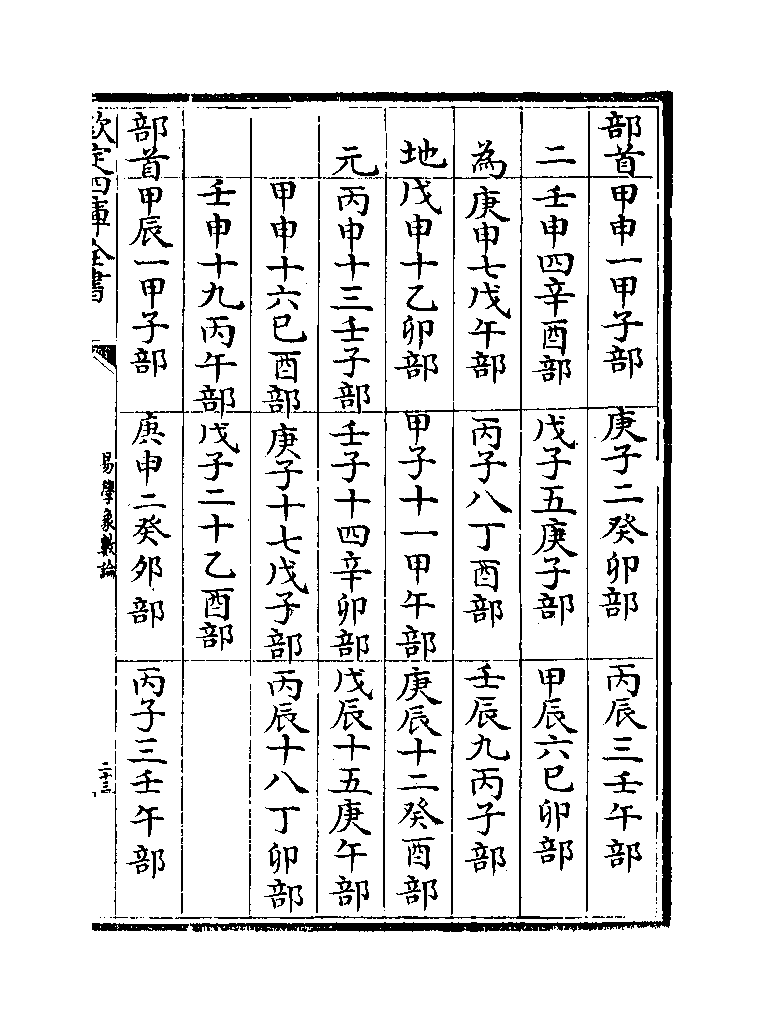 部首甲申一甲子部 庚子二癸卯部 丙辰三壬午部
二壬申四辛酉部 戊子五庚子部 甲辰六已卯部
為庚申七戊午部 丙子八丁酉部 壬辰九丙子部
地戊申十乙卯部 甲子十一甲午部 庚辰十二癸酉部
元丙申十三壬子部 壬子十四辛卯部 戊辰十五庚午部
甲申十六已酉部 庚子十七戊子部 丙辰十八丁卯部
壬申十九丙午部 戊子二十乙酉部
部首甲辰一甲子部 庚申二癸夘部 丙子三壬午部
欽定四庫全書 易學象數論 二十三